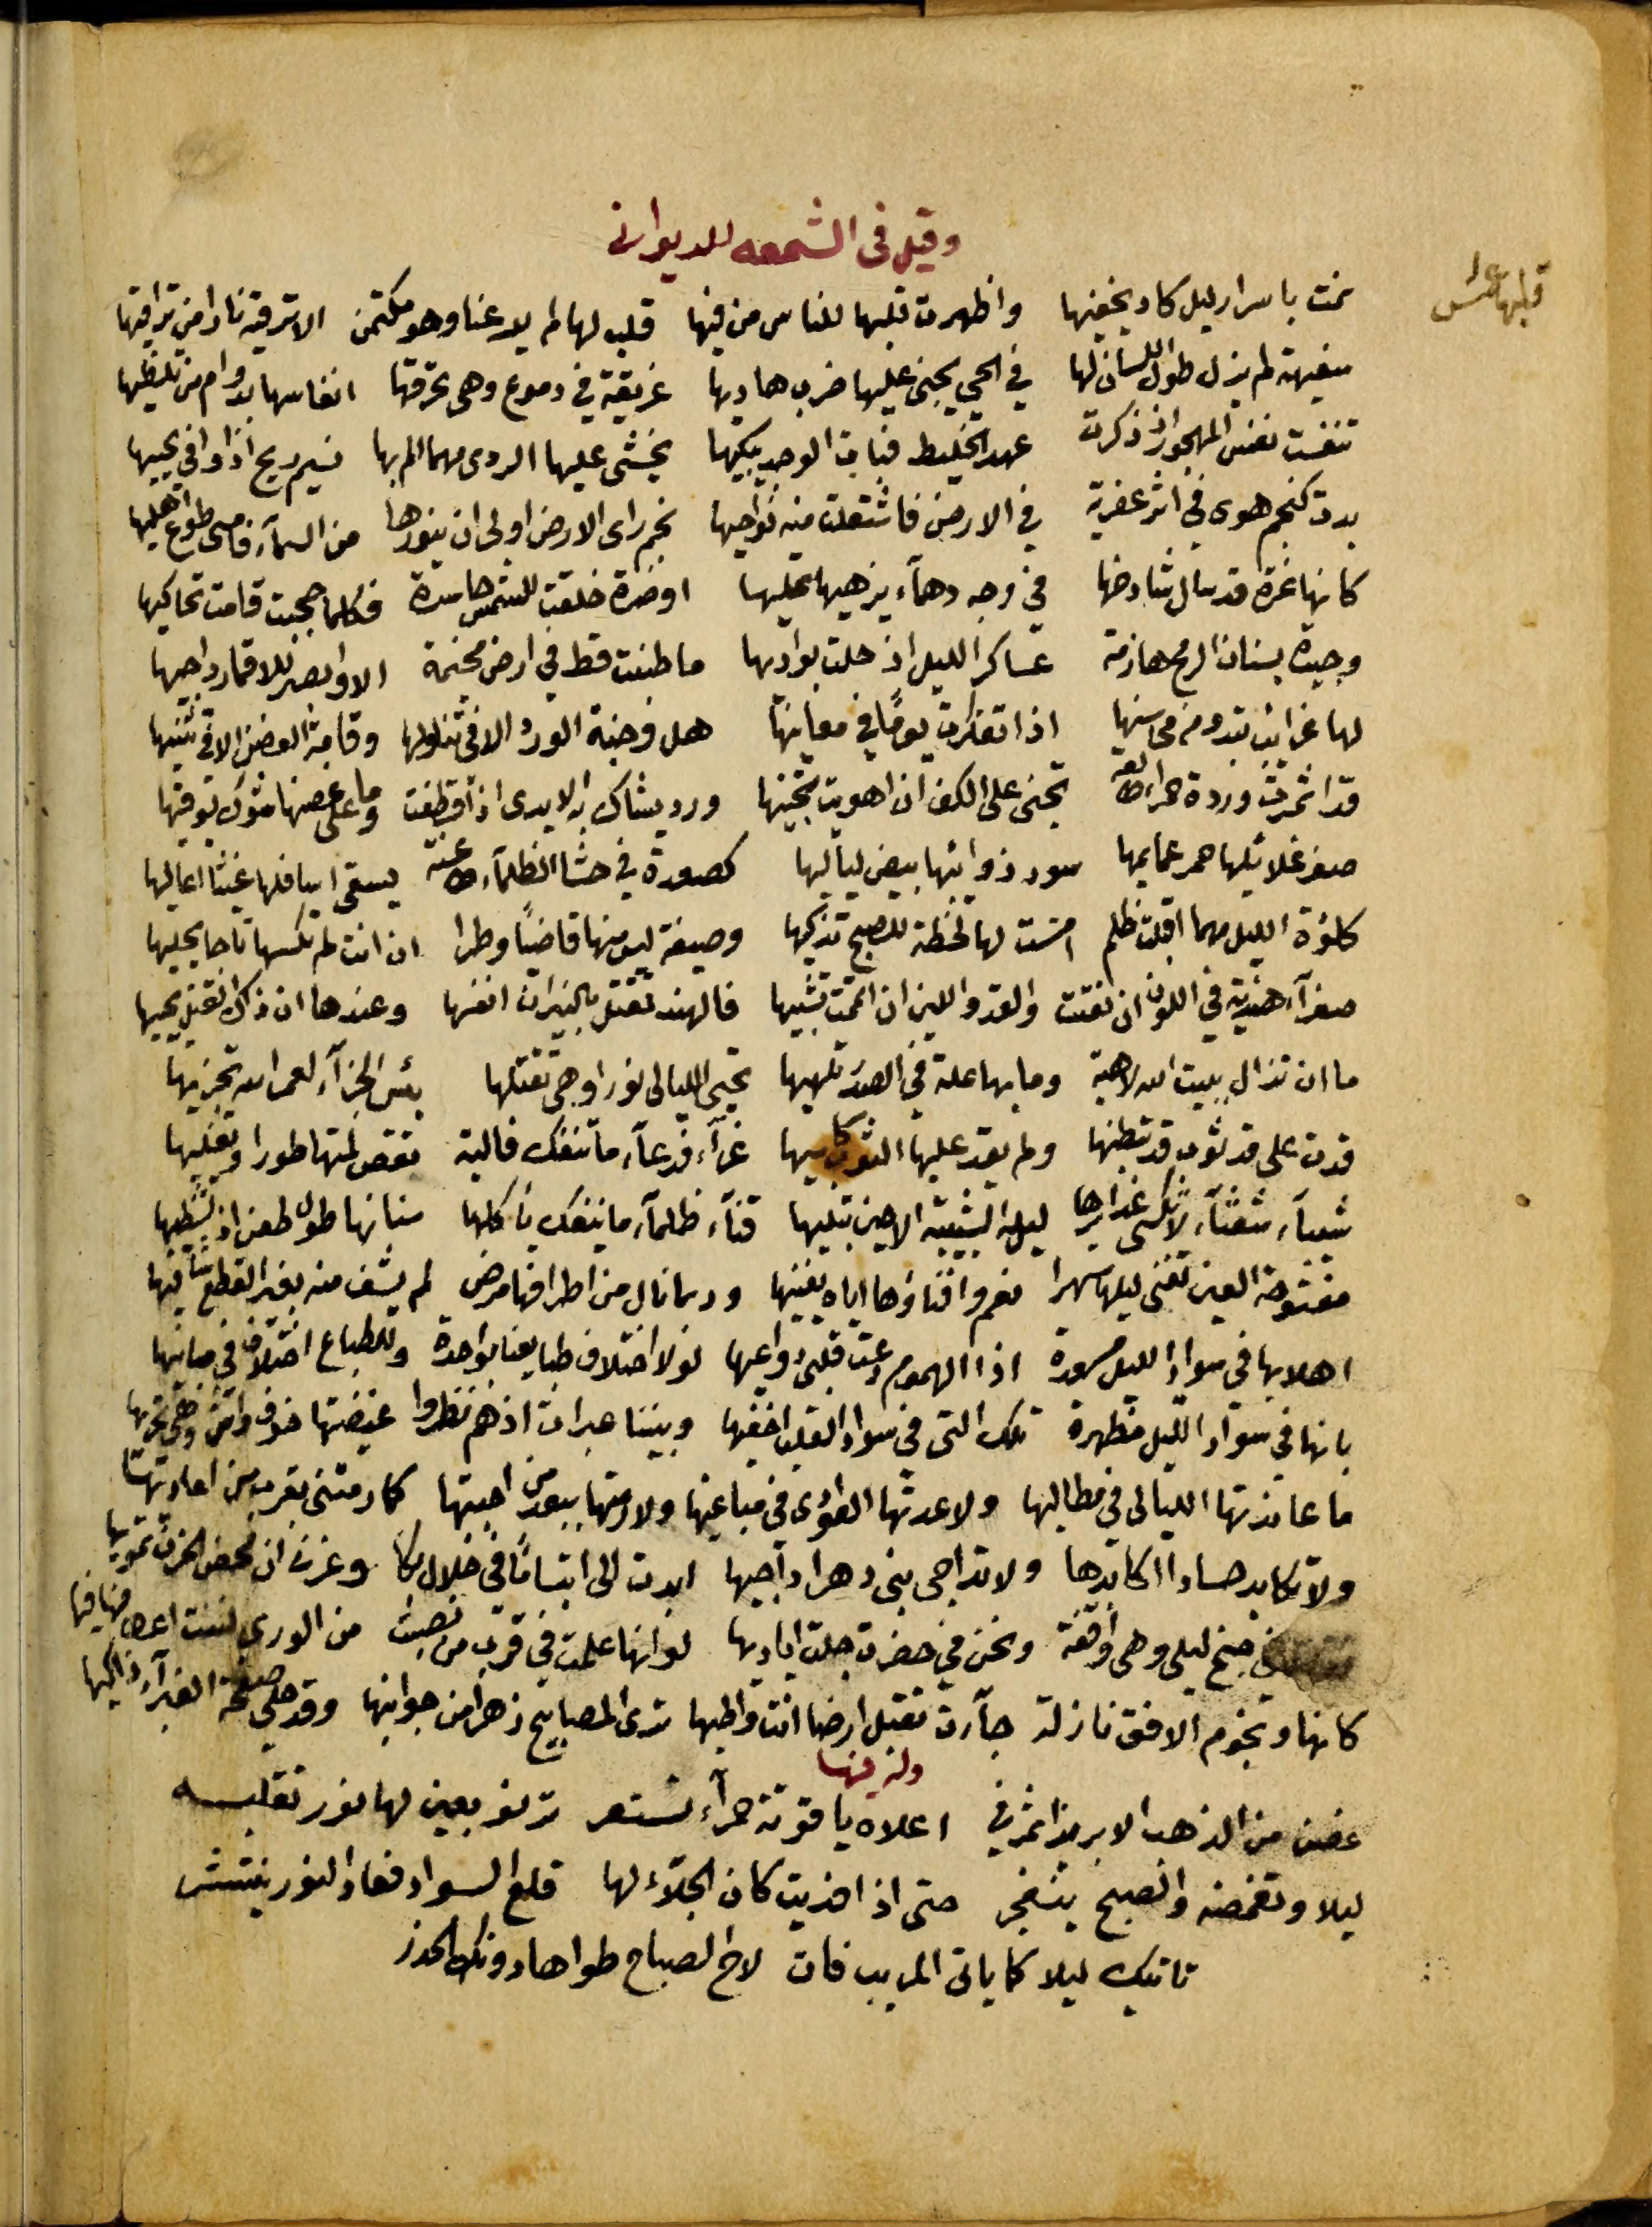 وقيل فى الشمعه للديوانى
قبلها
نمت باسرار ليل كاد يخفيها واظهرت قلبها للناس من فيها قلب لها لم يدعنا وهو مكتمن الا ترقيه نارا من تراقيها
سفيهة لم يزل طول اللسان لها في الحي يجنى عليها ضرب هاديها غريقة في دموع وهى تحرقها انفاسها بدوام من تلظيها
تنفست نفس المهجور اذ ذكرت عهد الخليط فبات الوجد يبكيها يخشى عليها الردى مهما الم بها نسيم ريح اذا وافى يحييها
بدت كنجم هوى في اثر عفرية في الارض فاشتعلت منه نواحيها نجم راى الارض اولى ان ينورها من السمآء فامسى طوع اهليها
كانها غرة قد سال شادخها في وجه دهمآء يزهيها تحليها او ضرة خلقت للشمس حاسدة فكلما حجبت قامت تحاكيها
وحيدة بسنان الرمح هازمة عساكر الليل اذ حلت بواديها ما طنبت قط في ارض مخيمة الا واقمر للابصار داجيها
لها غرائب تبدو من محاسنها اذا تفكرت يوما في معانيها هل وجنة الورد الا في تناولها وقامة الغصن الا في تثنيها
قد اثمرت وردة حمرآء طالعة تجنى على الكف ان اهويت تجنيها ورد يشاك به الايدى اذا قطفت وما على غصنها شوك يوقيها
صفر غلائلها حمر عمايمها سود ذوائبها بيض لياليها كصعدة في حشا الظلمآء طاعنة يسقى اسافلها غيثا اعاليها
كلوة الليل مهما اقبلت ظلم امست لها لحظة للصبح تذكيها وصيفة لست منها قاضيا وطرا ان انت لم تكسها تاجا يحليها
صفرآء هندية في اللون ان نعتت والقد واللين ان اتممت تشبيها فالهند تقتل بالنيران انفسها وعندها ان ذاك القتل يحييها
ما ان تزال ببيت الله لاهية وما بها علة في الصدر تلهيها تحيى الليالى نورا وهى تقتلها بئس الجزآء لعمر الله تجزيها
قدت على قد ثوب قد تبطنها ولم يقدر عليها الثوب كاسيها غرآء فرعآء ما تنفك فالية تقص لمتها طورا وتفليها
شيبآء شعثآء لا تكسى غدايرها لون الشبيبة الا حين تبليها قنآء ظلمآء ما ينفك ياكلها سنانها طول طعن اذ يشظيها
مفتوحة العين تفنى ليلها سهرا نعم وافناؤها اياه يفنيها وربما نال من اطرافها مرض لم يشف منه بغير القطع شافيها
اهلا بها في سواد الليل مسعدة اذا الهموم دعت قلبى دواعيها لولا اختلاف طبايعنا بواحدة وللطباع اختلاف في مبانيها
بانها في سواد الليل مظهرة تلك التى في سواد القلب اخفيها وبيننا عبرات اذ هم نظروا غيضتها خوف واش وهى تجريها
ما عاندتها الليالى في مطالبها ولا عدتها العوادى في مباغيها ولا رمتها ببعد من احبتها كما رمتنى بقرب من اعاديها
ولا تكابد حسادا اكابدها ولا تداجى بنى دهر اداجيها ابدت الى ابتسامًا في خلال بكا وعزت ان محض الحزن تمويها
في جنح ليلى وهى واقفة ونحن في حضرة جلت اياديها لو انها علمت في قرب من نصبت من الورى لثنت اعطافها تيها
كانها ونجوم الافق نازلة جآءت تقبل ارضا انت واطيها ترى المصابيح زهرا من جوانبها وقد حلى صفحة الغبرآء ذاكيها
وله فيها
غصن من الذهب الابريز اثمر في اعلاه ياقوتة حمرآء تستعر ترنو بعين لها نور تقلبه
ليلا وتغمضه والصبح ينفجر حتى اذا اقذيت كان الجلآء لها قلع السواد فعاد النور ينتشر
تاتيك ليلا كما ياتى المريب فان لاح الصباح طواها دونك الحذر